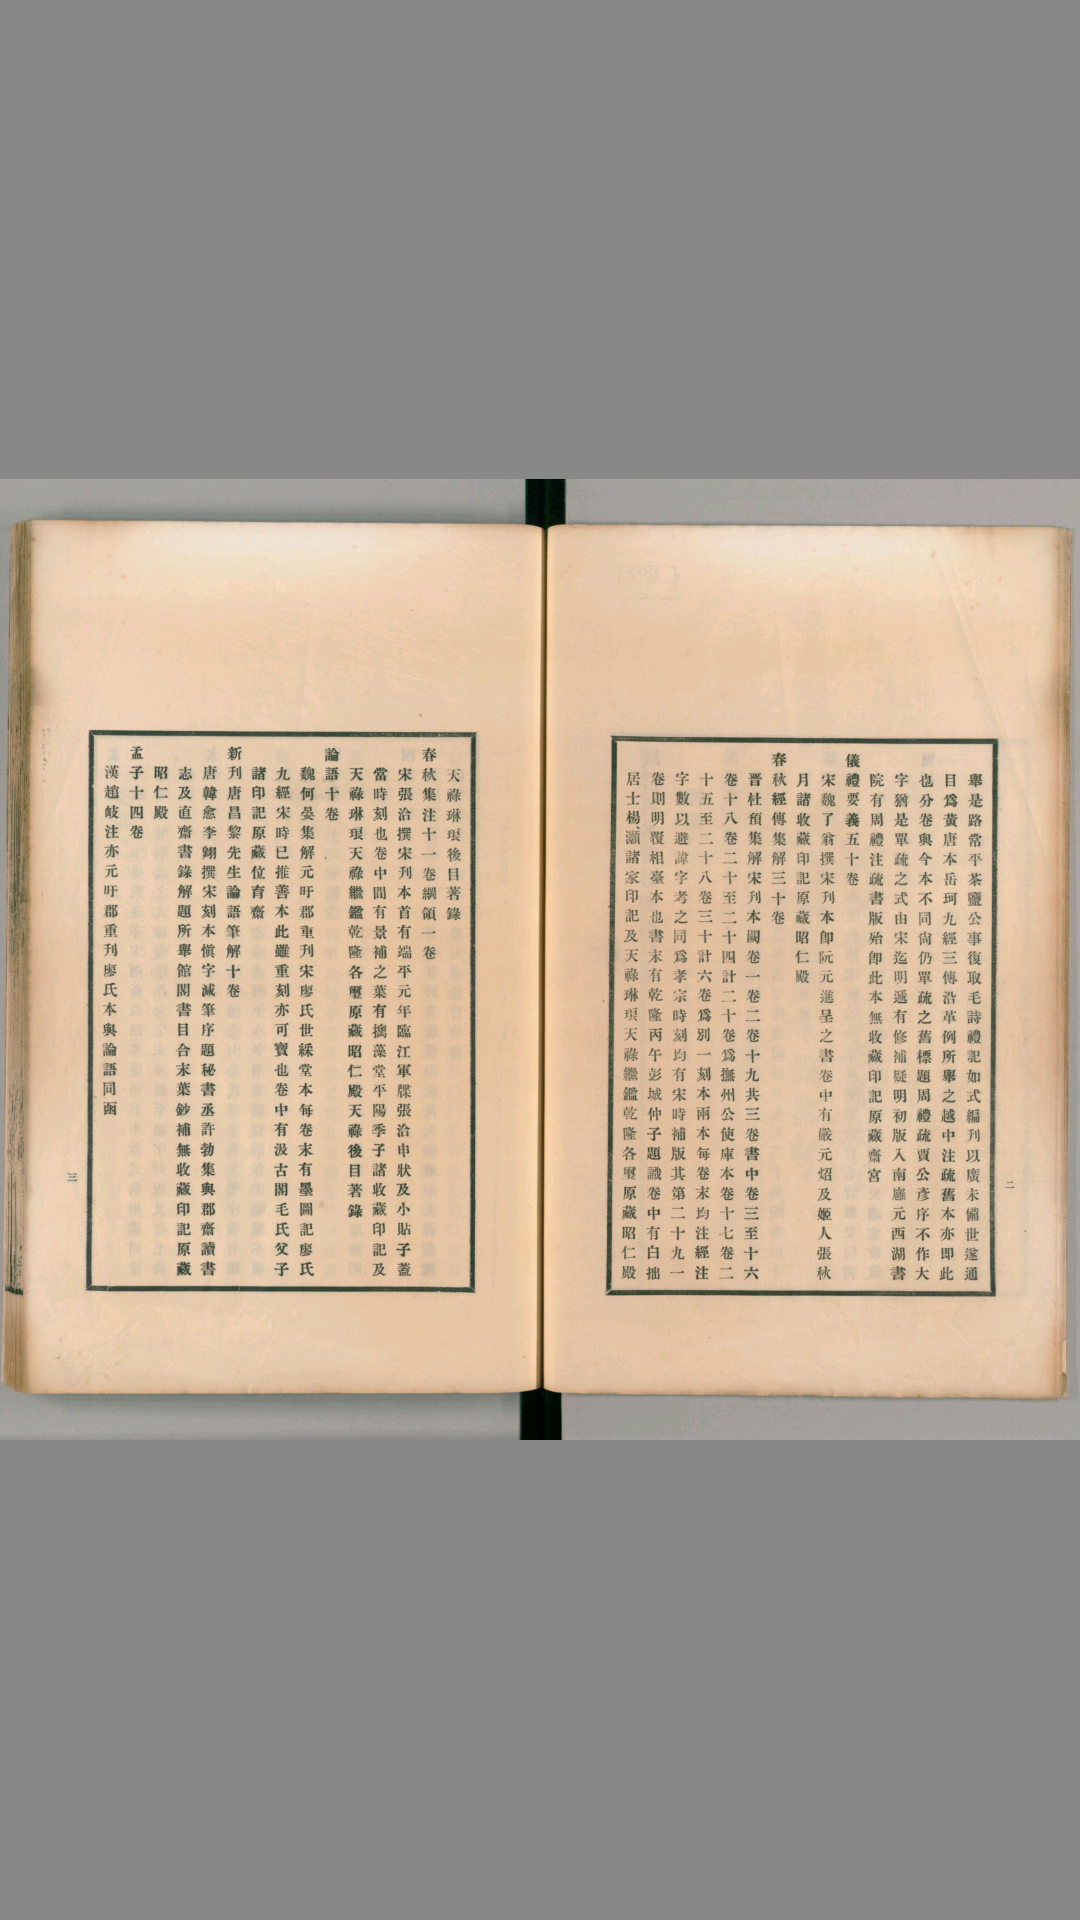 舉是路常平茶鹽公事復取毛詩禮記如式編刊以廣未備世遂通
目爲黃唐本岳珂九經三傳沿革例所舉之越中注疏舊本亦即此
也分卷與今本不同尙仍單疏之舊標題周禮疏賈公彥序不作大
字猶是單疏之式由宋迄明遞有修補疑明初版入南雍元西湖書
院有周禮注疏書版殆卽此本無收藏印記原藏齋宮
儀禮要義五十卷
宋魏了翁撰宋刊本卽阮元進呈之書卷中有嚴元炤及姬人張秋
月諸收藏印記原藏昭仁殿
春秋經傳集解三十卷
晉杜預集解宋刊本闕卷一卷二卷十九共三卷書中卷三至十六
卷十八卷二十至二十四計二十卷爲撫州公使庫本卷十七卷二
十五至二十八卷三十計六卷爲別一刻本兩本每卷末均注經注
字數以避諱字考之同爲孝宗時刻均有宋時補版其第二十九一
卷則明覆相臺本也書末有乾隆丙午彭城仲子題識卷中有白拙
居士楊灝諸家印記及天祿琳琅天祿繼鑑乾隆各璽原藏昭仁殿
二
天祿琳琅後目著錄
春秋集注十一卷綱領一卷
宋張洽撰宋刊本首有端平元年臨江軍牒張洽申狀及小貼子蓋
當時刻也卷中間有景補之葉有擒藻堂平陽季子諸收藏印記及
天祿琳琅天祿繼鑑乾隆各璽原藏昭仁殿天祿後目著錄
論語十卷
魏何晏集解元旴郡重刊宋廖氏世綵堂本每卷末有墨圖記廖氏
九經宋時已推善本此雖重刻亦可寶也卷中有汲古閣毛氏父子
諸印記原藏位育齋
新刊唐昌黎先生論語筆解十卷
唐韓愈李翊撰宋刻本愼字減筆序題秘書丞許勃集與郡齋讀書
志及直齋書錄解題所舉館閣書目合末葉鈔補無收藏印記原藏
昭仁殿
孟子十四卷
漢趙岐注亦元旴郡重刊廖氏本與論語同函
三